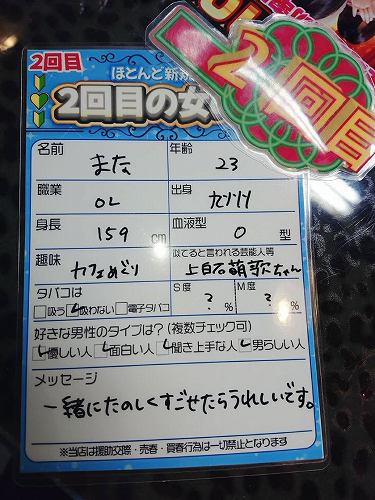 2回目
2回目
ほとんど新規
2回目の女
名前 まな 年齢 23
職業 OL 出身 九州
身長 159 cm 血液型 O 型
趣味 カフェめぐり 似てると言われる芸能人等 上白石萌歌ちゃん
タバコは □吸う ☑吸わない □電子タバコ S度 ? % M度 ? %
好きな男性のタイプは?(複数チェック可)
☑優しい人 ☑面白い人 ☑聞き上手な人 ☑男らしい人
メッセージ
一緒にたのしくすごせたらうれしいです。
※当店は援助交際・売春・買春行為は一切禁止となります